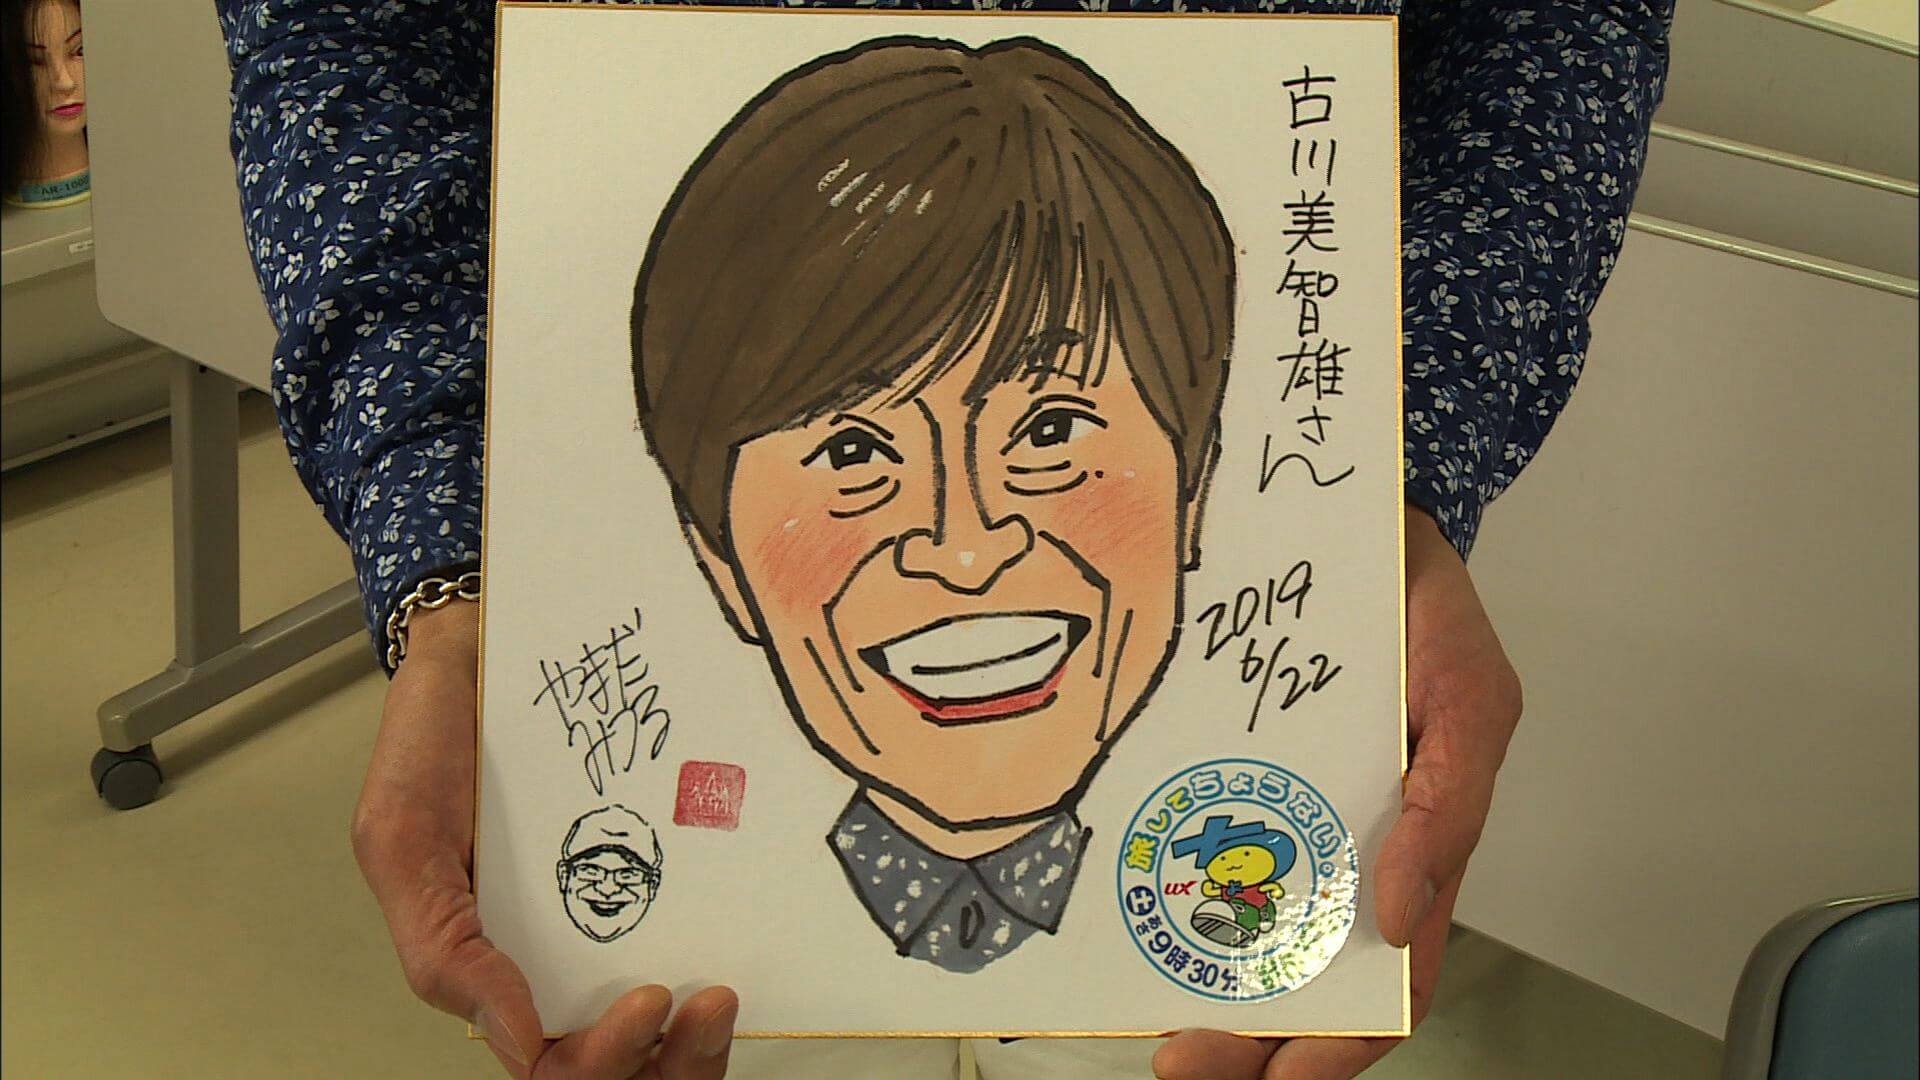 古川美智雄さん
2019
6/22
やまだ
みつる
旅してちょうない。
UX
土あさ9時30分
AR-100